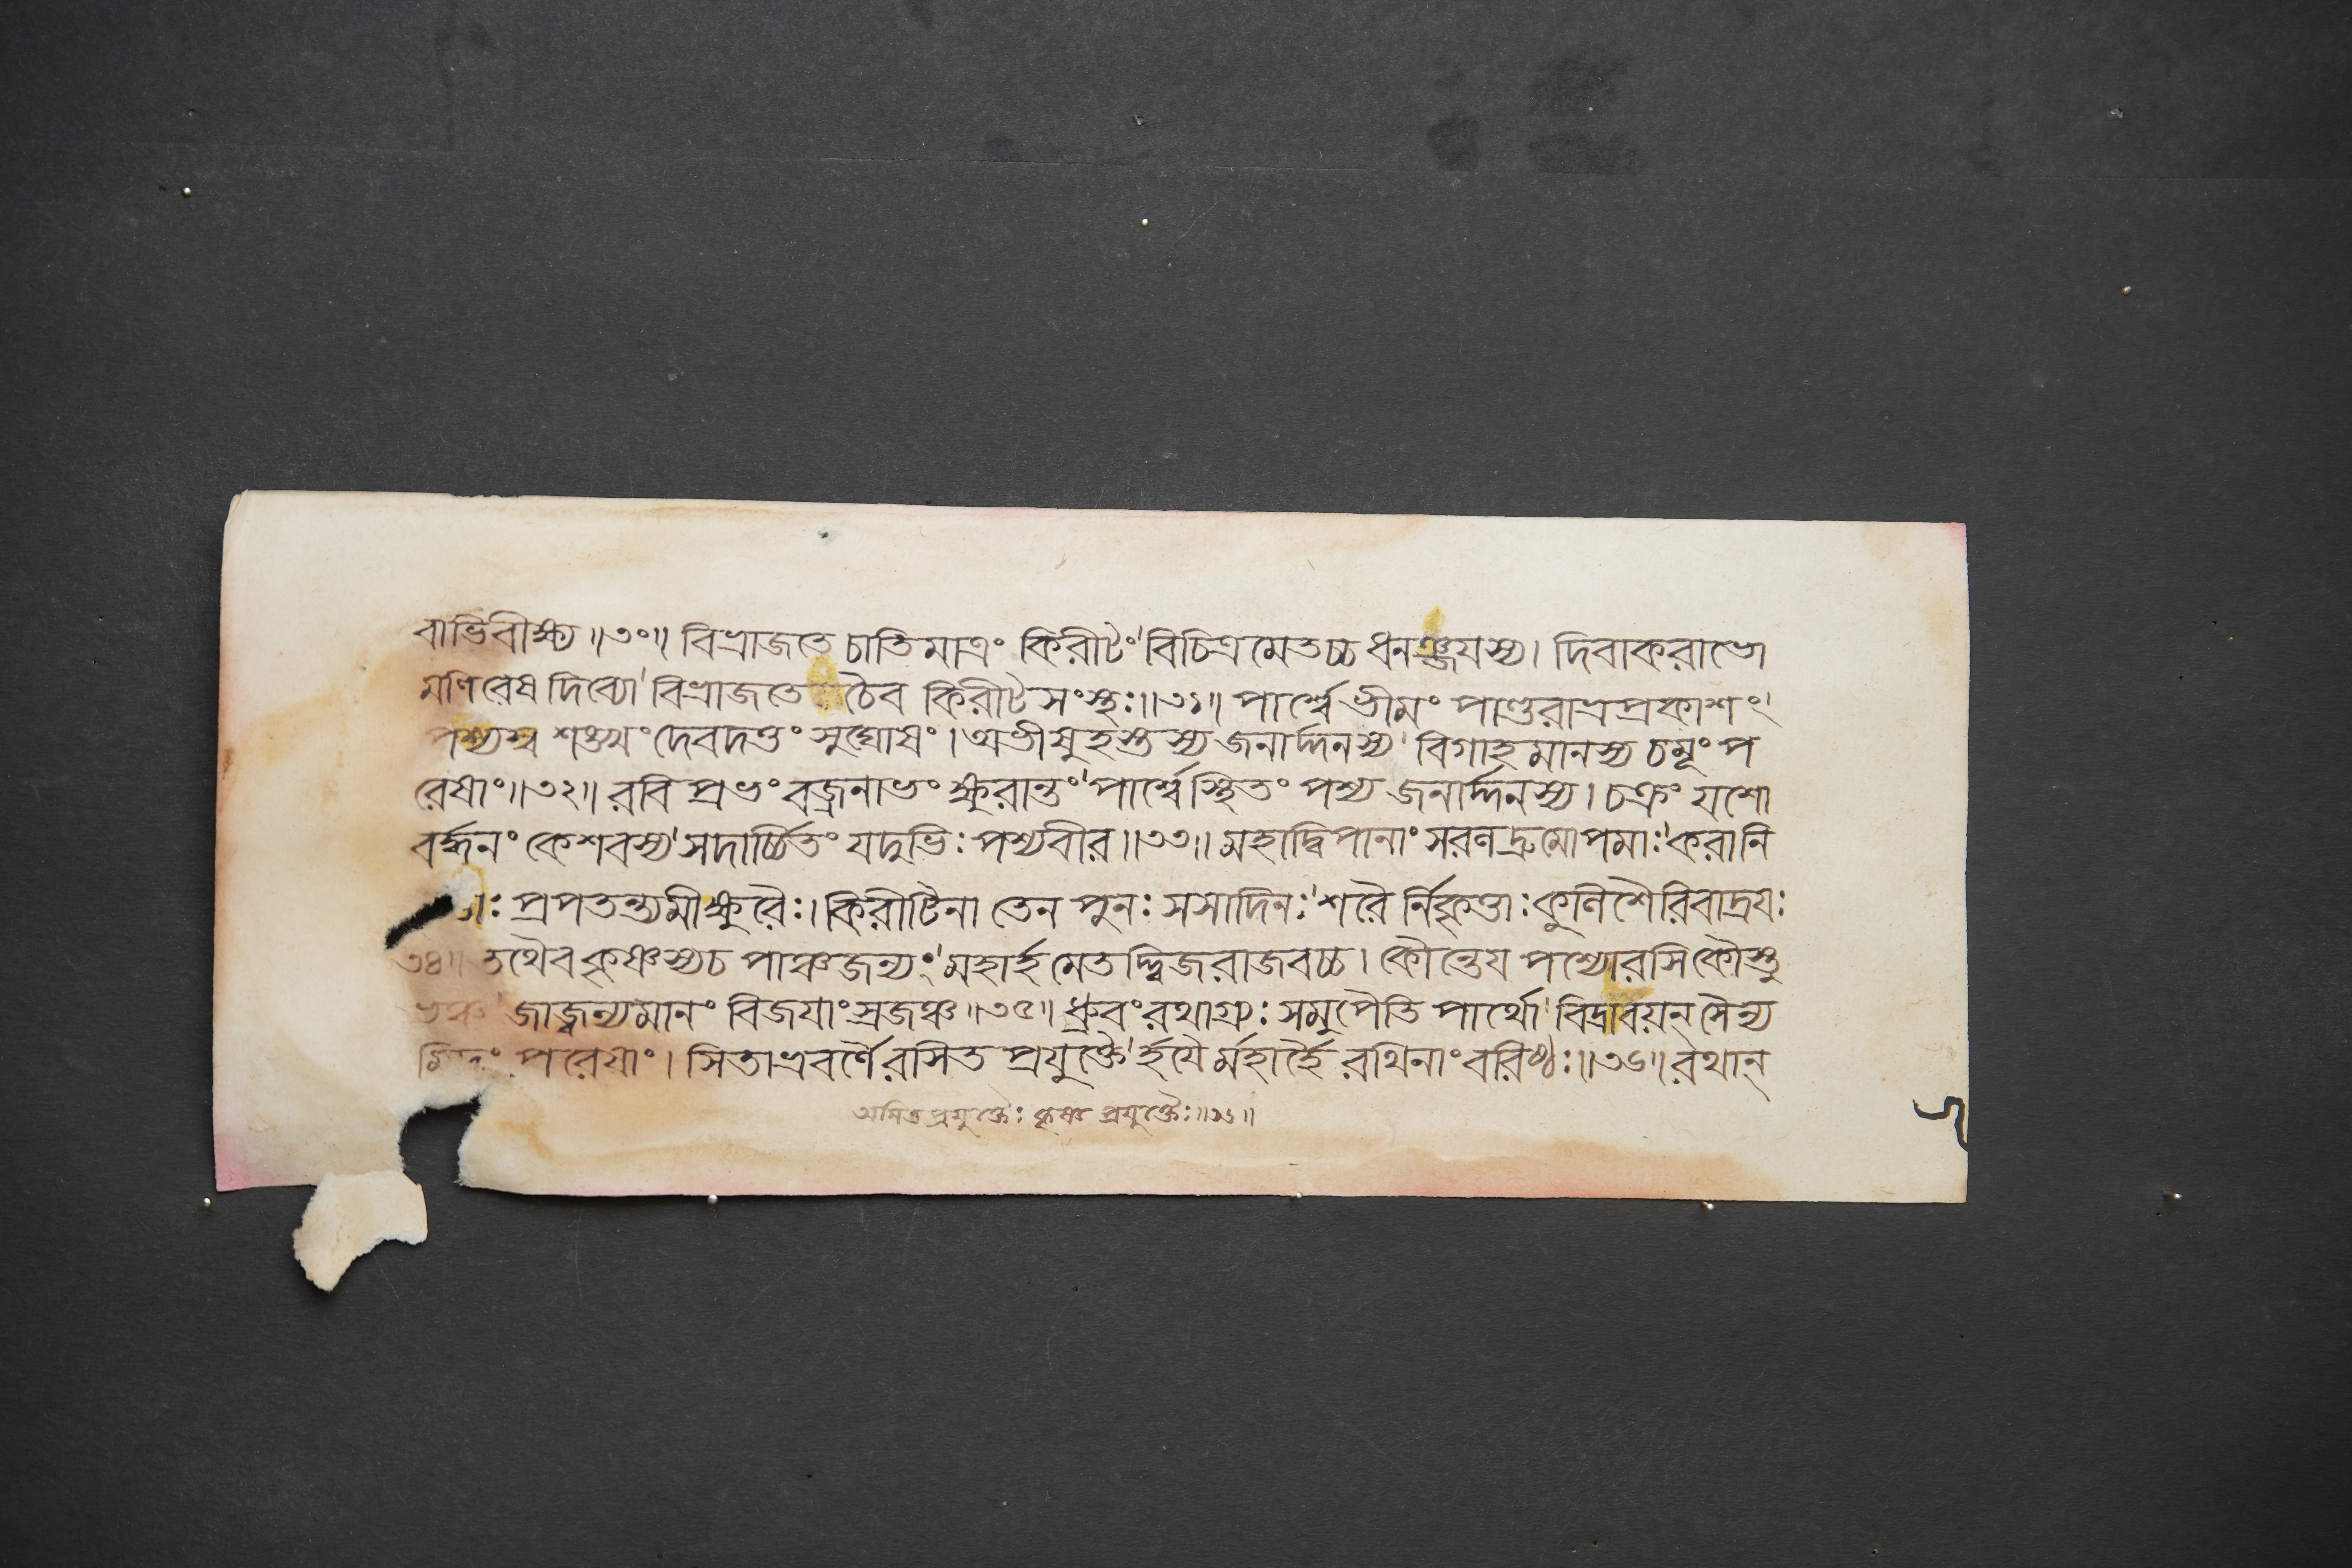 বাভিবীক্ষ্য॥৩০॥ বিভ্রাজতে চাতিমাত্রং কিরীটং' বিচিত্রমেতচ্চ ধনঞ্জয়স্য। দিবাকরাভো
মণিরেষ দিব্যো' বিভ্রাজতে চৈব কিরীটসংস্থঃ॥৩১॥ পার্শ্বে ভীমং পাণ্ডুরাভ্রপ্রকাশং'
পশ্যস্ব শঙ্খং দেবদত্তং সুঘোষং। অভীষুহস্তস্য জনার্দ্দনস্য' বিগাহমানস্য চমূং প
রেষাং॥৩২॥ রবিপ্রভং বজ্রনাভং ক্ষুরান্তং' পার্শ্বে স্থিতং পশ্য জনার্দ্দনস্য। চক্রং যশো
বর্দ্ধনং কেশবস্য' সদার্চ্চিতং যদুভিঃ পশ্যবীর॥৩৩॥ মহাদ্বিপানাং সরলদ্রুমোপমাঃ' করানি
প্রপতন্ত্যমীক্ষুরৈঃ। কিরীটিনা তেন পুনঃ সসাদিনঃ' শরৈ র্নিকৃত্তাঃ কুলিশৈরিবাদ্রয়ঃ
৩৪॥ তথৈব কৃষ্ণস্যচ পাঞ্চজন্যং' মহার্হমেতদ্দ্বিজরাজবচ্চ। কৌন্তেয় পশ্যোরসি কৌস্তু
ভঞ্চ' জাজ্বল্যমানং বিজয়াং স্রজঞ্চ॥৩৫॥ ধ্রুবং রথাগ্র্যঃ সমুপৈতি পার্থো' বিদ্রাবয়ন্ সৈন্য
মিদং পরেষাং। সিতাভ্রবর্ণৈ রসিত প্রযুক্তৈ' র্হয়ৈ র্মহার্হৈ রথিনাং বরিষ্ঠঃ॥৩৬॥ রথান্
অসিতপ্রযুক্তৈঃ কৃষ্ণ প্রযুক্তৈঃ॥৩৬॥